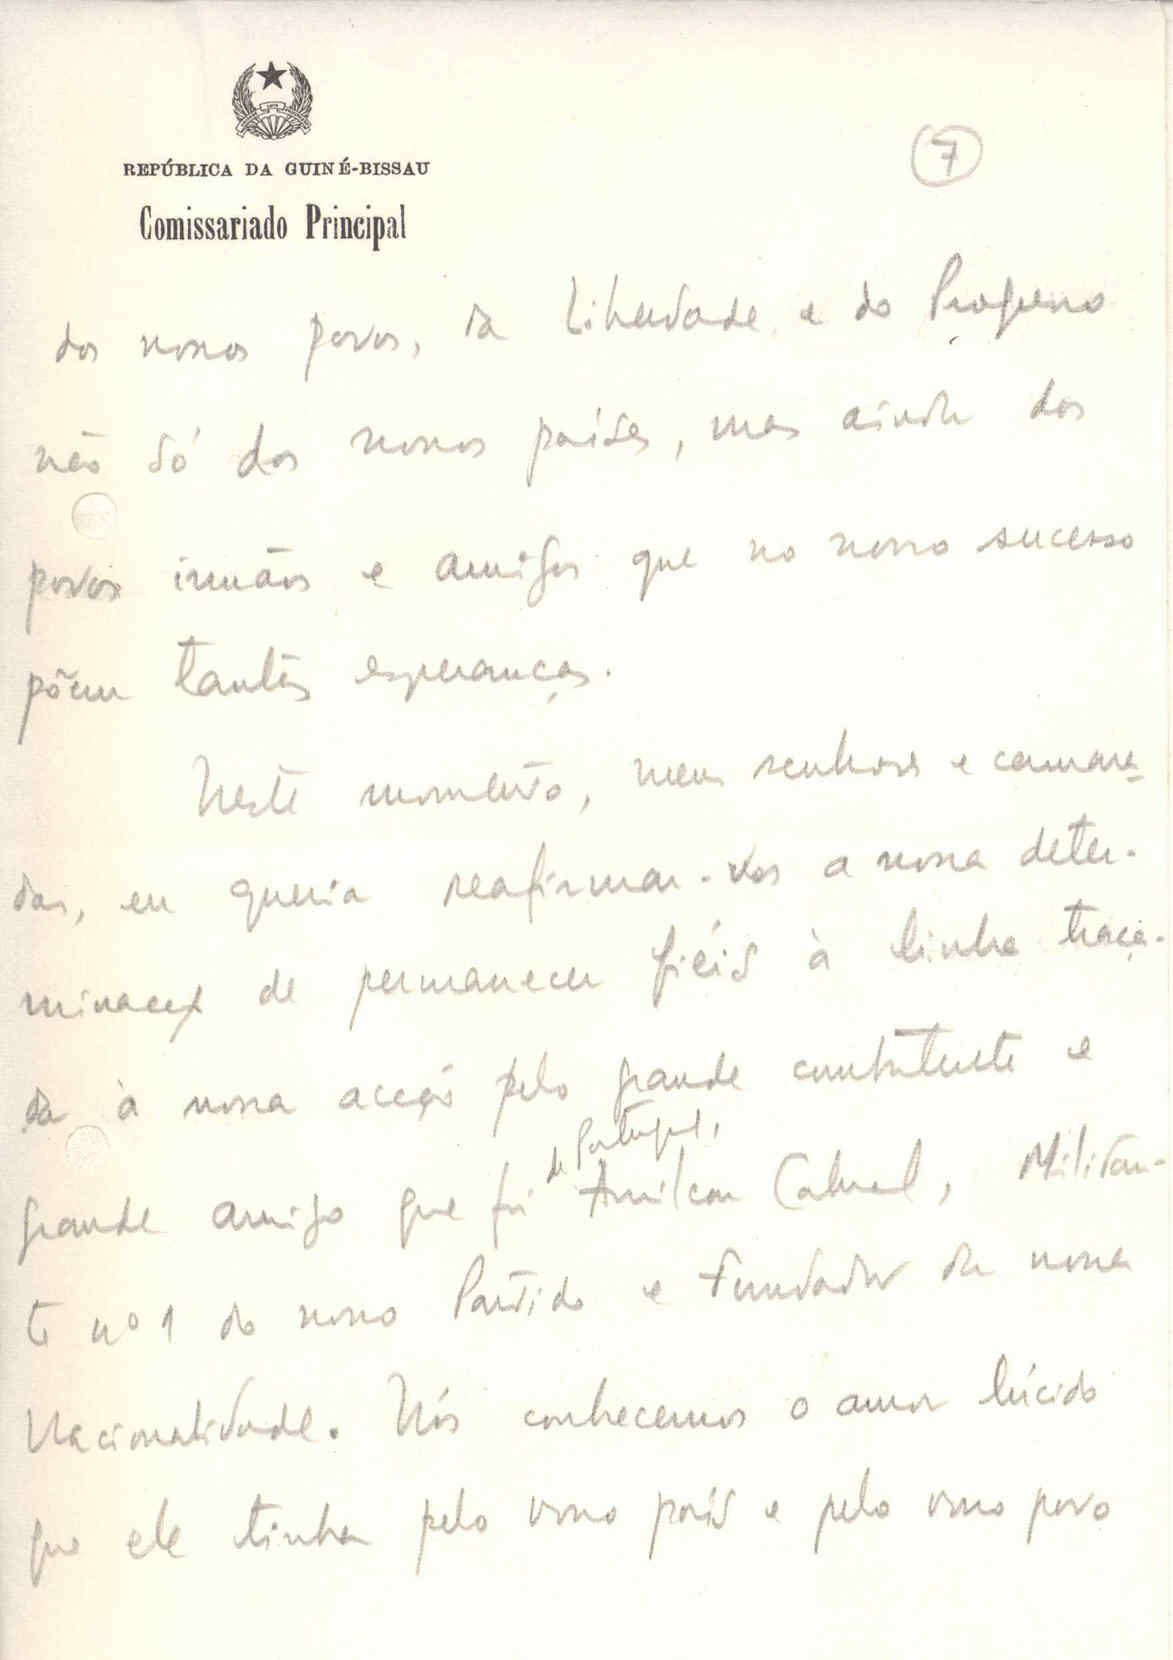 REPÚBLICA DA GUINÉ-BISSAU
Comissariado Principal
7
dos nossos povos, da Liberdade e do Progresso
não só dos nossos países, mas ainda dos
povos irmãos e amigos que no nosso sucesso
põem tantas esperanças.
Neste momento, meus senhores e camara-
das, eu queria reafirmar-vos a nossa deter-
minação de permanecer fiéis à linha traça-
da à nossa acção pelo grande combatente e
de Portugal,
grande amigo que foi Amílcar Cabral, Militan-
te nº 1 do nosso Partido e Fundador da nossa
Nacionalidade. Nós conhecemos o amor lúcido
que ele tinha pelo vosso país e pelo vosso povo